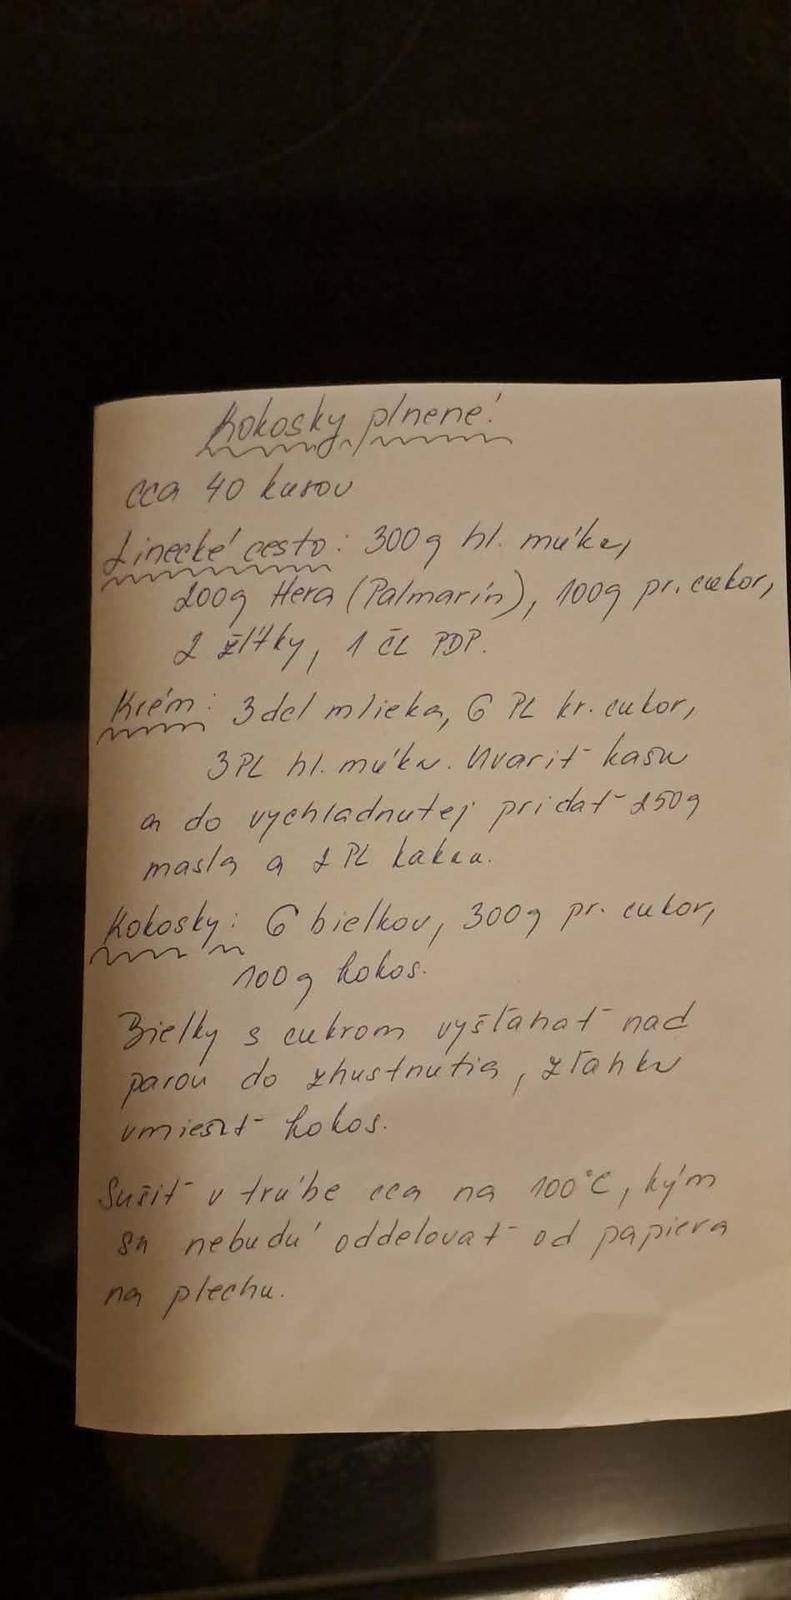 Kokosky plnené!
cca 40 kusov
Linecké cesto: 300g hl. múky,
200g Hera (Palmarín), 100g pr. cukor,
2 žĺtky, 1 ČL PDP.
Krém: 3 del mlieka, 6 PL kr. cukor,
3 PL hl. múky. Uvariť kašu
a do vychladnutej pridať 250g
masla a 2 PL kakaa.
Kokosky: 6 bielkov, 300g pr. cukor,
100g kokos.
Bielky s cukrom vyšľahať nad
parou do zhustnutia, zľahka
vmiešať kokos.
Sušiť v trúbe cca na 100°C, kým
sa nebudú oddelovať od papiera
na plechu.